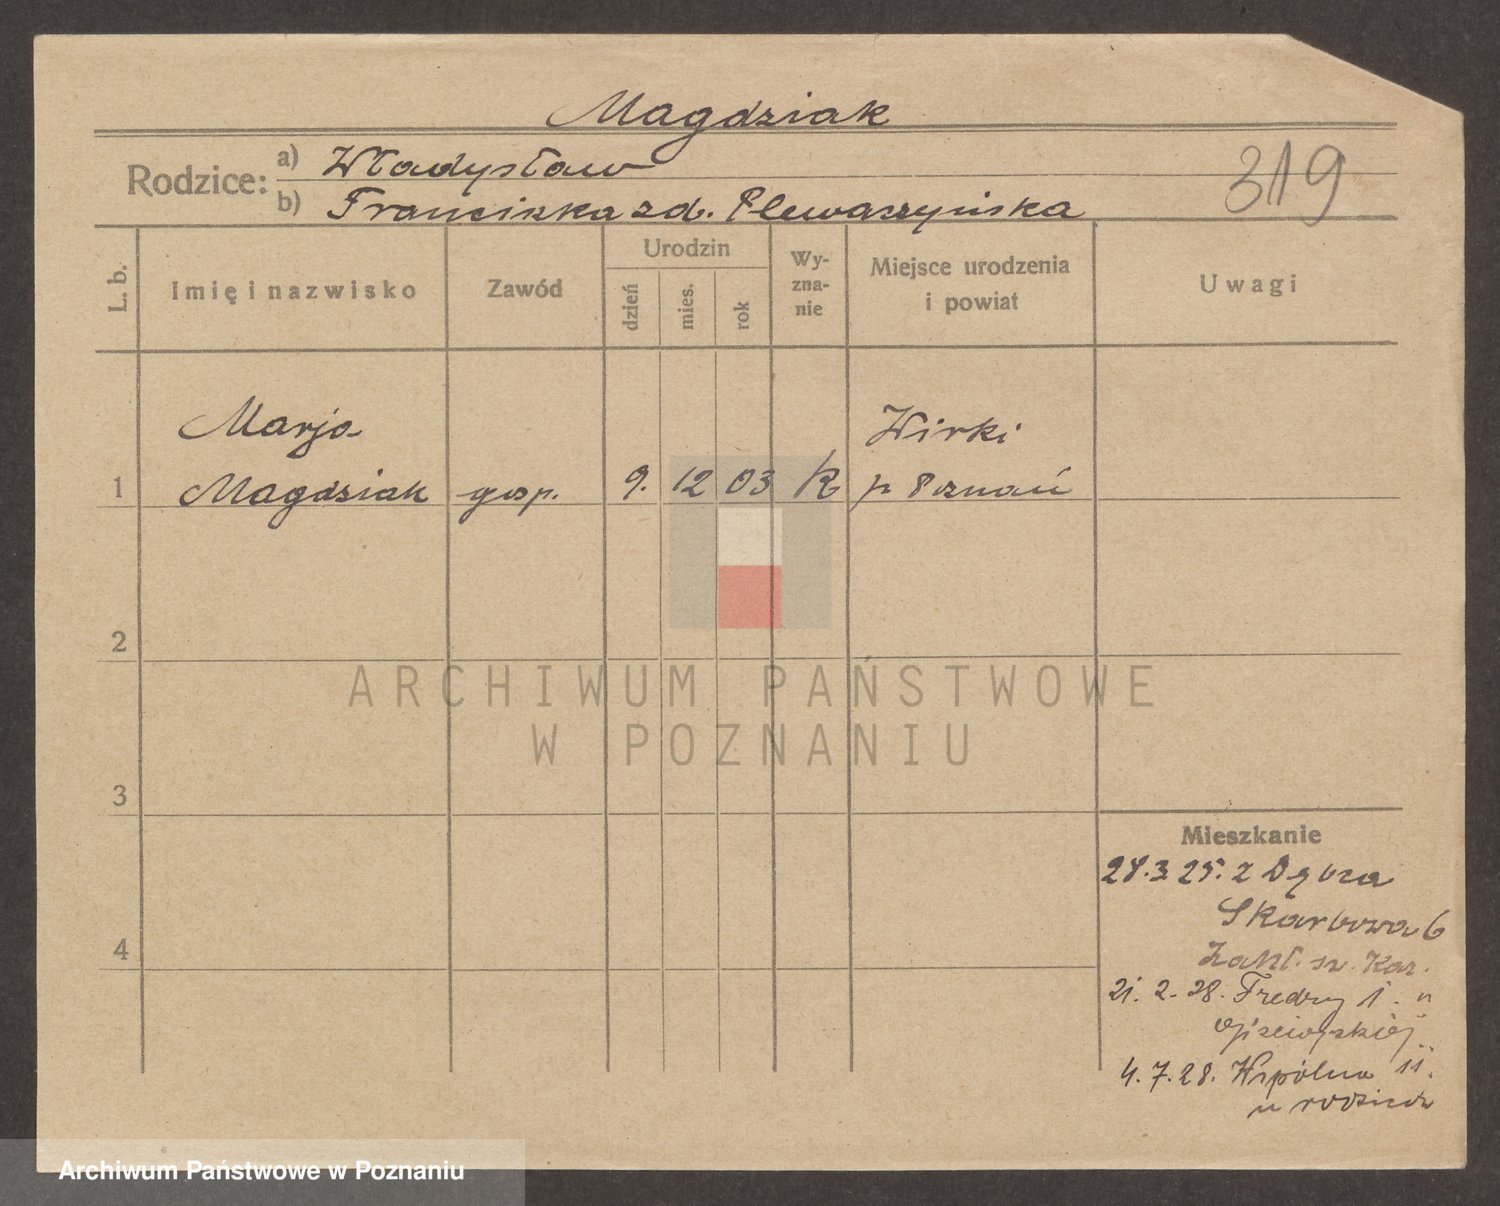 Magdziak
Rodzice: a) Władysław
b) Franciszka zd. Plewaszyńska
319
L. b.
Imię i nazwisko
Zawód
Urodzin
dzień
mies.
rok
Wy-
zna-
nie
Miejsce urodzenia
i powiat
Uwagi
Marja
Wirki
1 Magdziak gosp. 9. 12 03 K p. Poznań
2
ARCHIWUM PAŃSTWOWE
W POZNANIU
3
4
Mieszkanie
28.3.25. z Dębca
Skarbowa 6
Zakł. Kar.
21. 2. 28. Fredry 1. u
4. 7. 28. Wspólna 11.
u rodziców
Archiwum Państwowe w Poznaniu